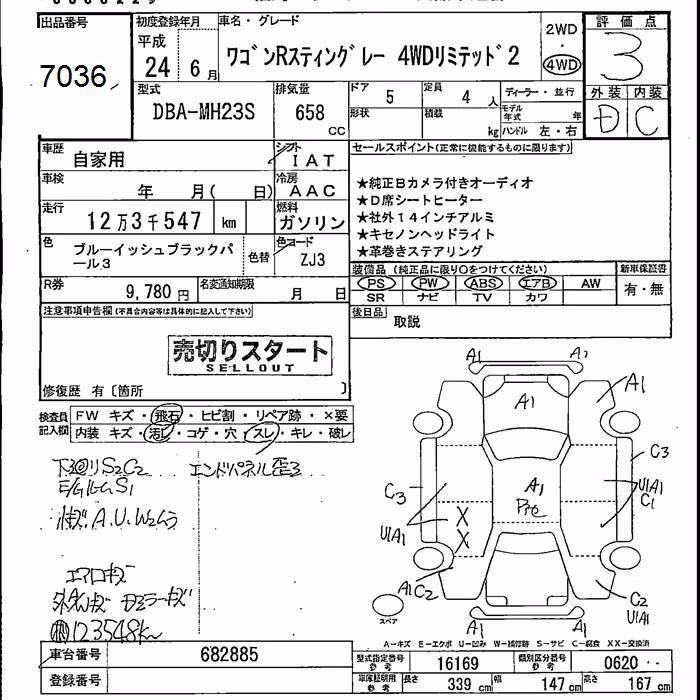 出品番号
7036
初度登録年月
平成
24 6月
車名・グレード
ワゴンRスティングレー 4WDリミテッド2
2WD
・
4WD
評価点
3
外装 内装
D C
型式
DBA-MH23S
排気量
658
CC
ドア
5
定員
4 人
形状
積載
kg
ディーラー・並行
モデル年式 年
ハンドル 左・右
車歴
自家用
シフト
IAT
車検
年 月( 日)
冷房
AAC
走行
12万3千547 km
燃料
ガソリン
色
ブルーイッシュブラックパール3
色替
色コード
ZJ3
R券
9,780円
名変通知期限
月 日
セールスポイント(正常に機能するものに限ります)
★純正Bカメラ付きオーディオ
★D席シートヒーター
★社外14インチアルミ
★キセノンヘッドライト
★革巻きステアリング
装備品 (純正品に限り○をつけてください)
PS PW ABS エアB AW
SR ナビ TV カワ
新車保証書
有・無
後日品
取説
注意事項申告欄(不具合内容等は具体的に記入して下さい)
売切りスタート
SELLOUT
修復歴 有〔箇所 〕
検査員記入欄
FW キズ・飛石・ヒビ割・リペア跡・×要
内装 キズ・汚レ・コゲ・穴・スレ・キレ・破レ
下回りS2C2
エンドパネル歪ミ
E/GルームS1
小キズA.U.W2ムラ
エアロキズ
外 キズ ミラーキズ
123548km
A1 A1
A1
A1
C3
C3
A1
U1A1
C1
X
X
U1A1
A1 C2
C2
U1A1
A1 A1
スペア
A-キズ E-エクボ U-凹み W-補修跡 S-サビ C-腐食 XX-交換済
車台番号
682885
登録番号
型式指定番号 参考
16169
類別区分番号 参考
0620
車庫証明用 参考
長さ 339 cm 幅 147 cm 高さ 167 cm